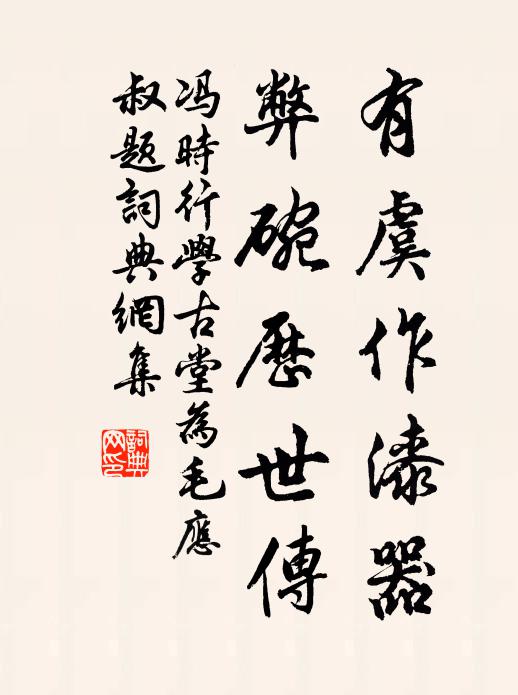 有虞作漆器
弊碗歷世傳
冯時行學古堂為毛應
叔題詞典網集
詞典网印